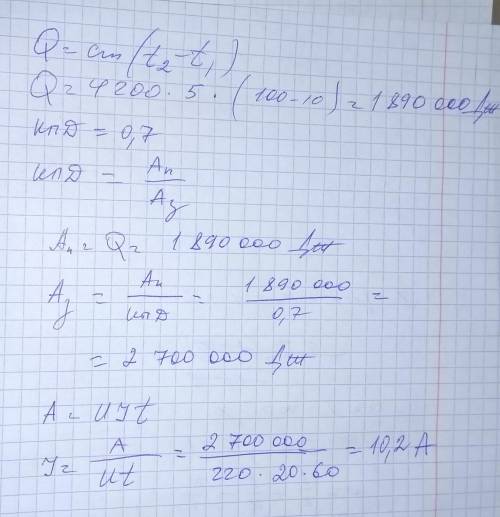 Q = cm(t₂ - t₁)
Q = 4200 · 5 · (100 - 10) = 1 890 000 Дж
кпД = 0,7
кпД = Aп / Aз
Aп = Q = 1 890 000 Дж
Aз = Aп / кпД = 1 890 000 / 0,7 =
= 2 700 000 Дж
A = UIt
I = A / Ut = 2 700 000 / 220 · 20 · 60 = 10,2 A